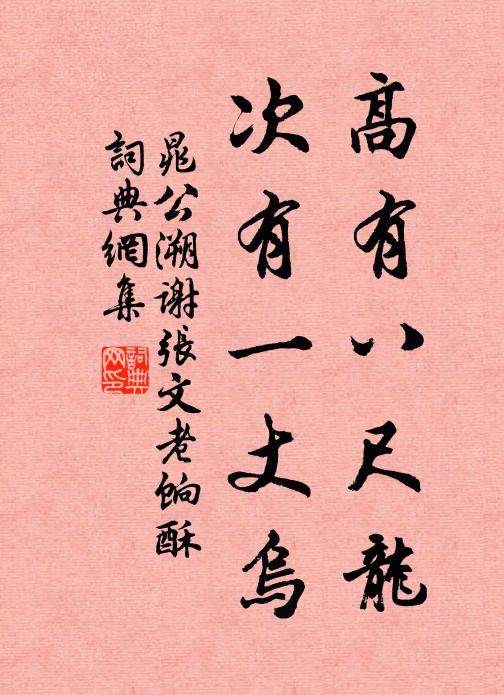 高有八尺龍
次有一丈烏
晁公溯謝張文老餉酥
詞典網集
詞典網印